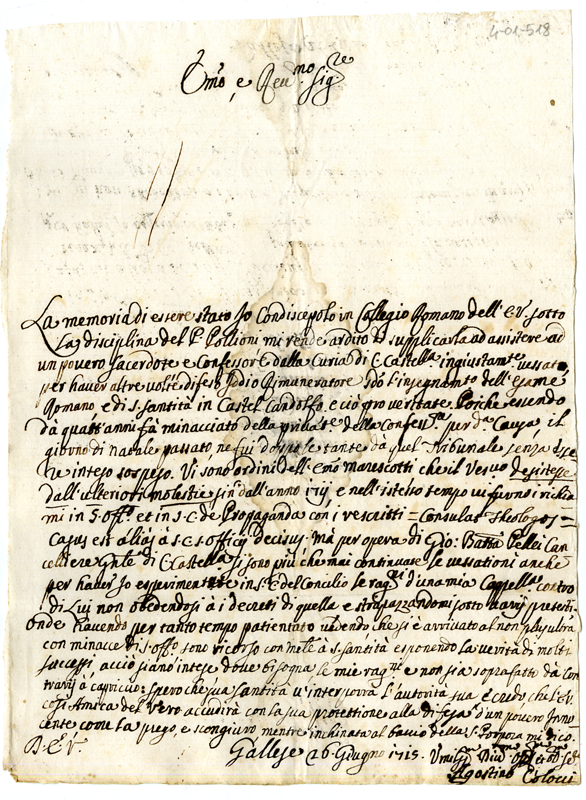 4-01-518
Emo, e Reu.mo Sig.re
La memoria di essere stato Io Condiscepolo in Collegio Romano dell'E.V. sotto
La disciplina del P. Pollioni mi rende ardito di supplicarla ad assistere ad
un povero sacerdote e Confessore dalla Curia di C. Castell.a ingiustam.te vessato,
per haver altre volte difeso Iddio Rimuneratore l'insegnamto dell'Esame
Romano e di S. Santità in Castel Candolfo, e ciò pro veritate. Poiche essendo
da quatt'anni fà minacciato della della Confess.ne per d.a Causa il
giorno di natale passato ne fui sospeso stante da quel Tribunale senza esse
re inteso sospeso. Vi sono ordini dell'Emo marescotti che il Vesuo desistesse
dall'ulteriori molestie sin dall'anno 1713, e nell'istesso tempo vi furono i richia
mi in S. Off.o et in S.C. de Propaganda con i rescritti = Consulat Theologos =
Casus est alias à S.C. S. Officij decisus. mà per opera di Gio: Batta Pellei Can
celliere Gnle di C. Castella si sono più che mai continuate le vessationi anche
per haver Io esperimentate in S.C. del Concilio le rag.ni d'una mia Cappell.a contro
di Lui non obedendosi à i decreti di quella e strapazzandomi sotto varij pretesti
onde havendo per tanto tempo patientato vedendo che si è arrivato al non plus ultra
con minacce di S. Off.o sono ricorso con mele à S. Santità esponendo la verità di molti
successi acciò siano intese dove bisogna le mie rag.ni e non sia soprafatto da con
trarij à capriccio: spero che sua Santità v'interporrà l'autorità sua e credo che l'E.V.
così Amica del vero accudirà con la sua protettione alla difesa d'un povero Inno
cente come la prego, e scongiuro mentre inchinato al bacio della S. Porpora mi dico.
D. E. V. Gallese 26. Giugno 1715. Umil.mo
Agostino Colocci